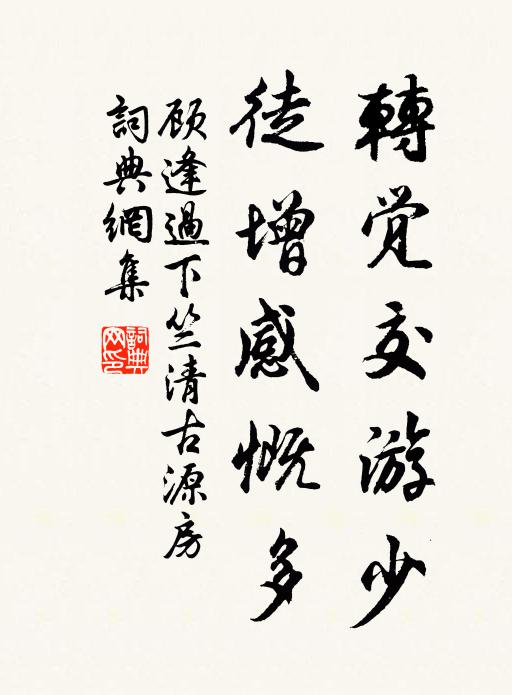 轉觉交游少
徒增感慨多
顾逢過下竺清古源房
詞典網集
詞典网印